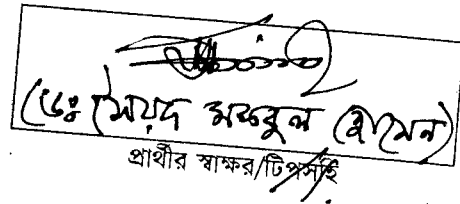 (ডঃ সৈয়দ মকবুল হোসেন)
প্রার্থীর স্বাক্ষর/টিপসহি